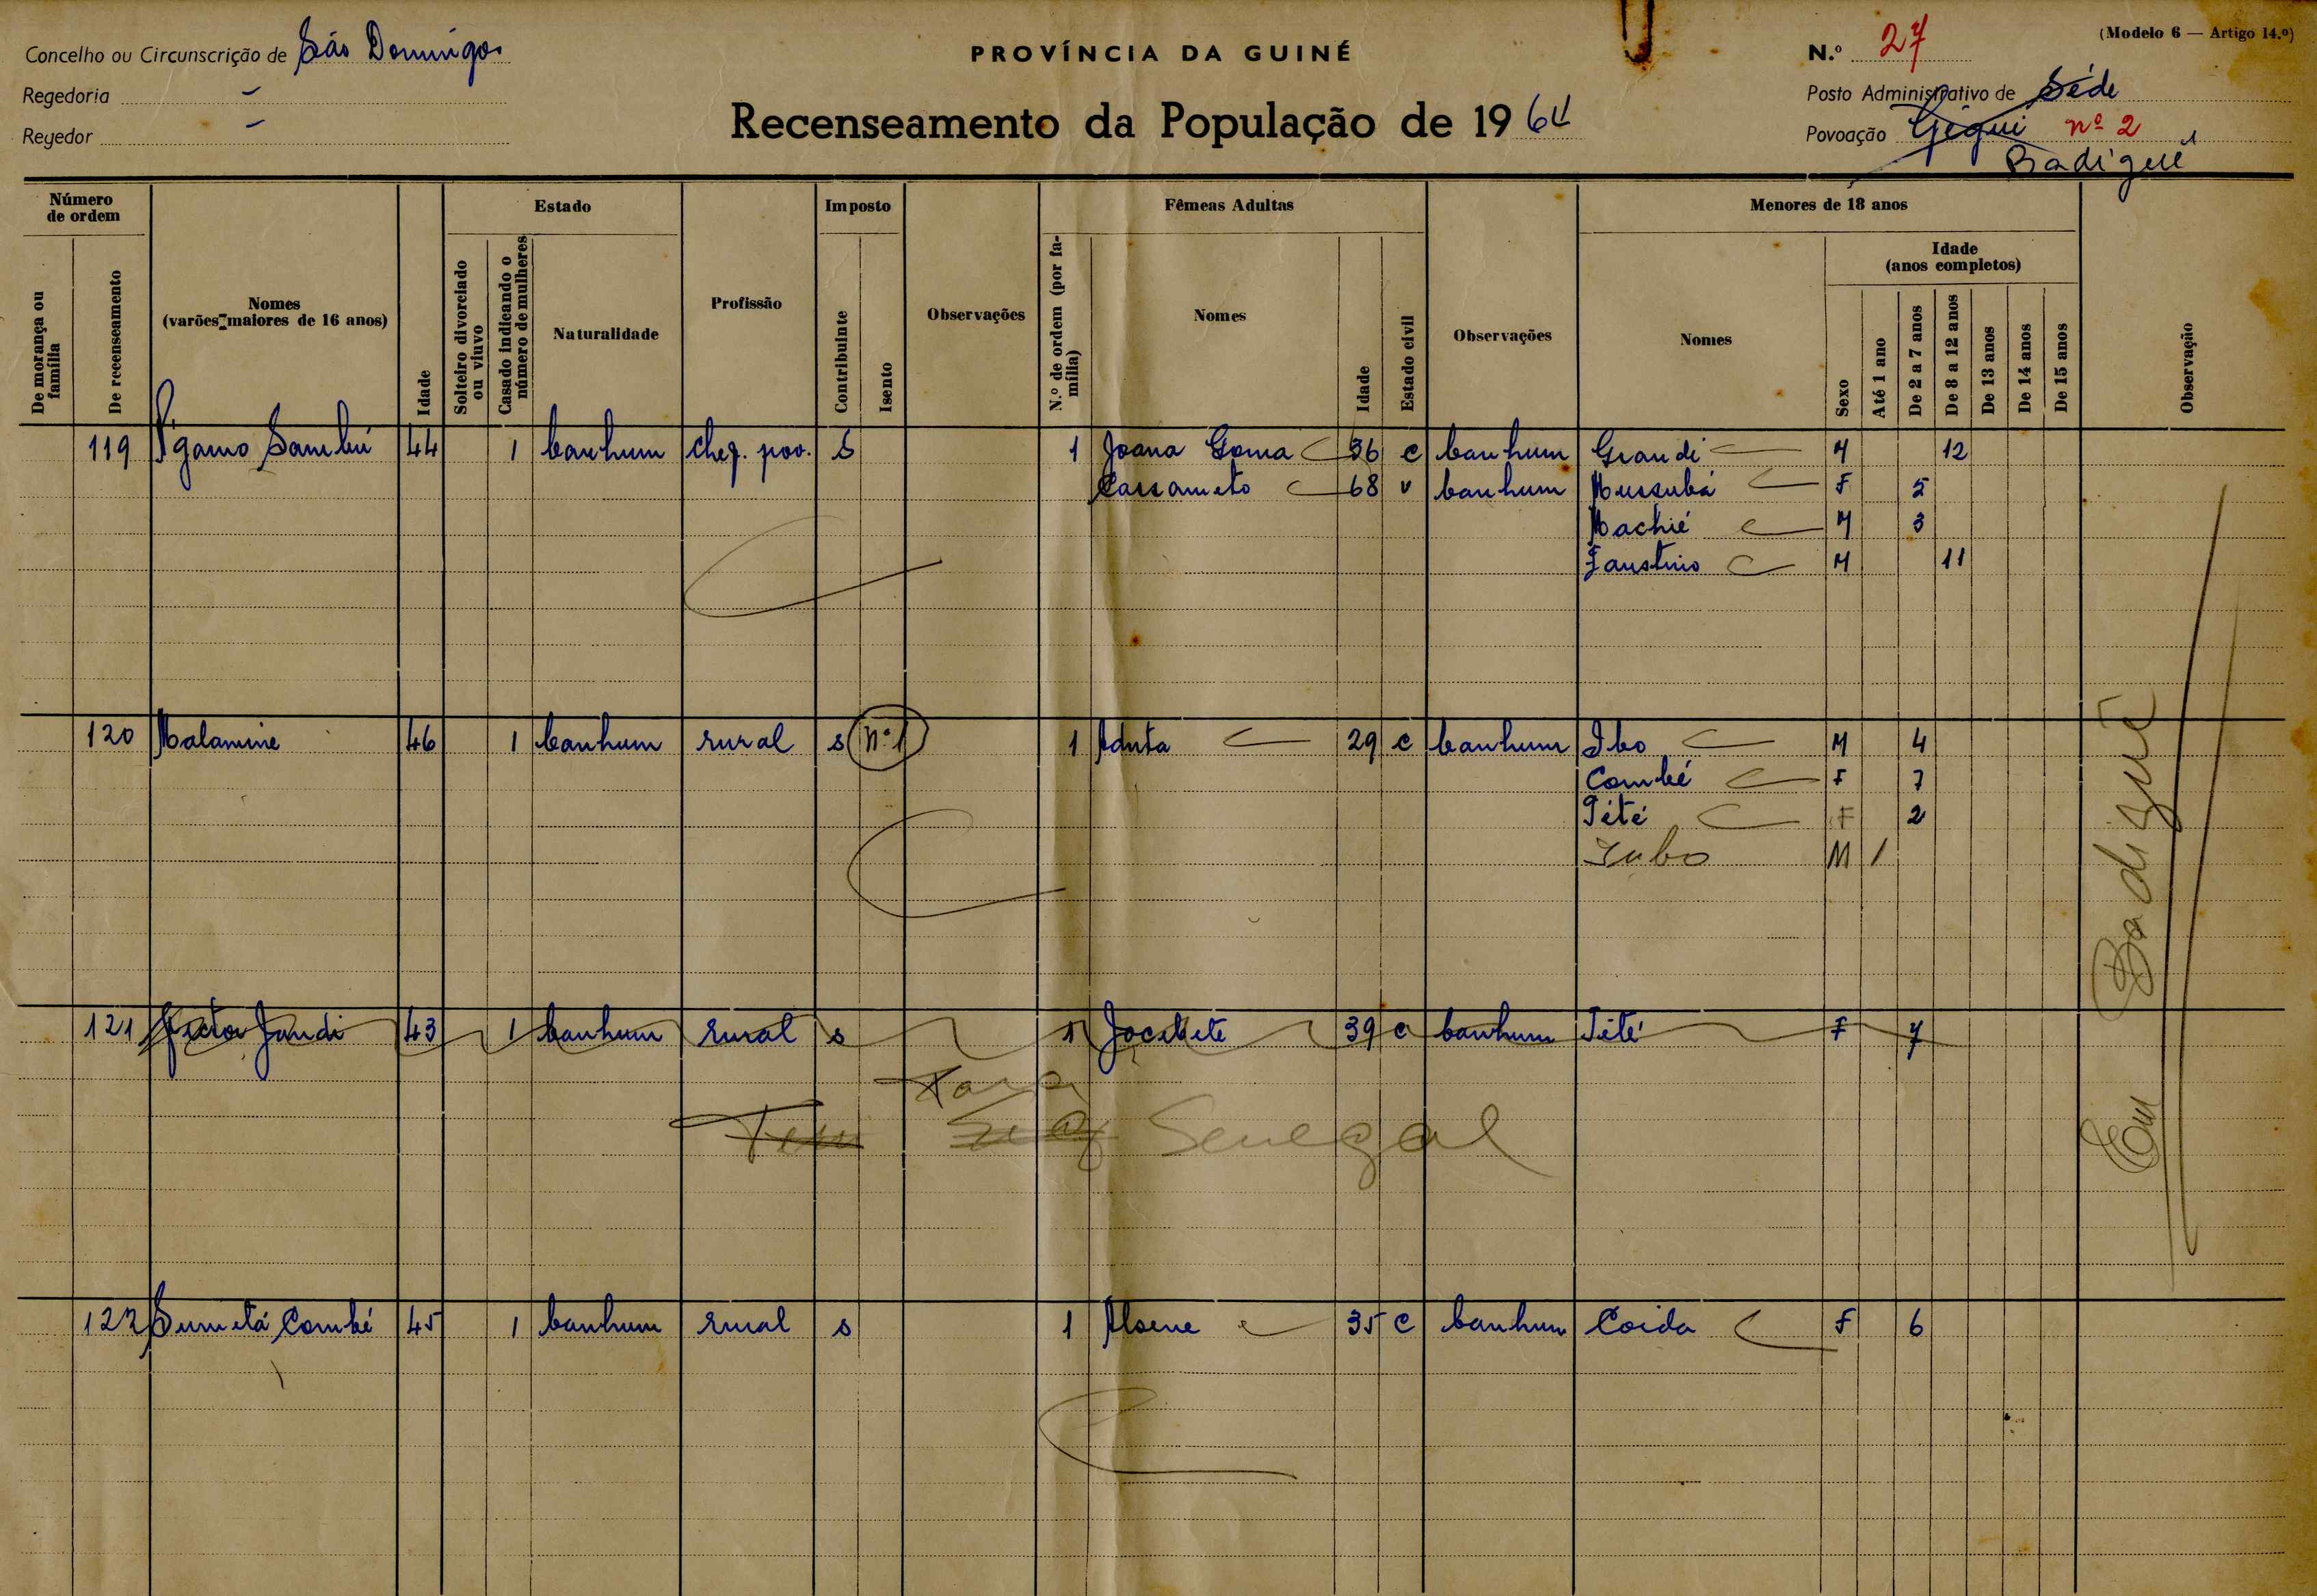 Concelho ou Circunscrição de São Domingos
PROVÍNCIA DA GUINÉ
N.º 27
(Modelo 6 — Artigo 14.º)
Regedoria -
Posto Administrativo de Séde
Regedor -
Recenseamento da População de 1964
Povoação Gégui nº 2
Badigué
Número de ordem
De morança ou família
De recenseamento
Nomes
(varões maiores de 16 anos)
Idade
Estado
Solteiro divorciado ou viuvo
Casado indicando o número de mulheres
Naturalidade
Profissão
Imposto
Contribuinte
Isento
Observações
Fêmeas Adultas
N.º de ordem (por família)
Nomes
Idade
Estado civil
Observações
Menores de 18 anos
Nomes
Sexo
Idade
(anos completos)
Até 1 ano
De 2 a 7 anos
De 8 a 12 anos
De 13 anos
De 14 anos
De 15 anos
Observação
119 Sambú 44 1 banhum chef. pov. s 1 Joana Goma 36 c banhum Grandi M 12
Cassameto 68 v banhum Mussubá F 5
Machié M 3
Faustino M 11
120 Malamine 46 1 banhum rural s nº 1 1 Aduta 29 c banhum Ibo M 4
Combé F 7
Tété F 2
Jubo M 1
121 Jandi 43 1 banhum rural s 1 Jocebete 39 c banhum Tété F 7
Para
Tem Senegal
122 Sumetá Combé 45 1 banhum rural s 1 Alsene 35 c banhum Coida F 6
Em Badigué